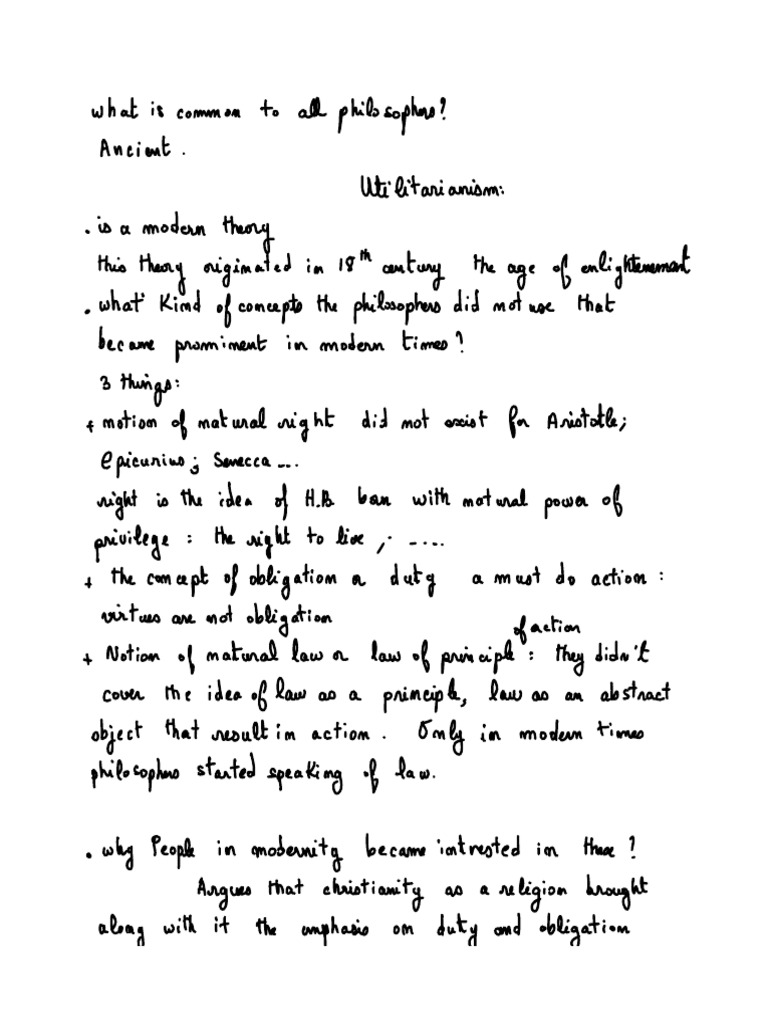 what is common to all philosophers?
Ancient.
Utilitarianism:
. is a modern theory
this theory originated in 18th century the age of enlightenement
. what kind of concepts the philosophers did not use that
became prominent in modern times?
3 things:
+ notion of natural right did not exist for Aristotle;
epicurius; Senecca ....
right is the idea of H.B born with natural power of
privilege: the right to live, .....
+ the concept of obligation or duty a must do action:
virtues are not obligation
of action
+ Notion of natural law or law of principle: they didn't
cover the idea of law as a principle, law as an abstract
object that result in action. Only in modern times
philosophers started speaking of law.
. why People in modernity became intrested in these?
Argues that christianity as a religion brought
along with it the emphasis on duty and obligation